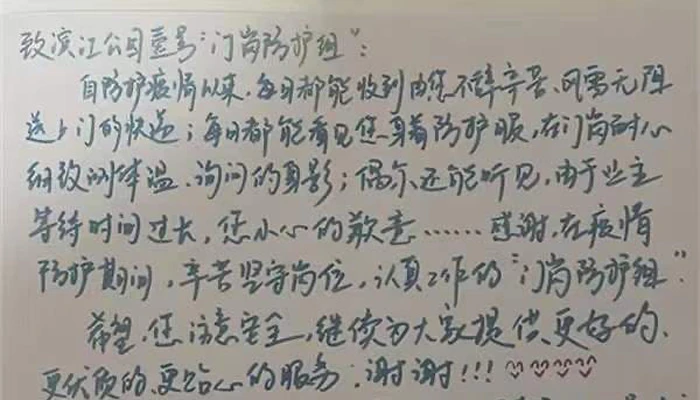 致滨江公园壹号“门岗防护组”：
自防护疫情以来，每日都能收到由您不辞辛苦、风雨无阻
送上门的快递；每日都能看见您身着防护服，在门岗耐心
细致测体温、询问的身影；偶尔还能听见，由于业主
等待时间过长，您小心的歉意……感谢，在疫情
防护期间，辛苦坚守岗位，认真工作的“门岗防护组”。
希望，您注意安全，继续为大家提供更好的、
更优质的、更贴心的服务，谢谢!!!